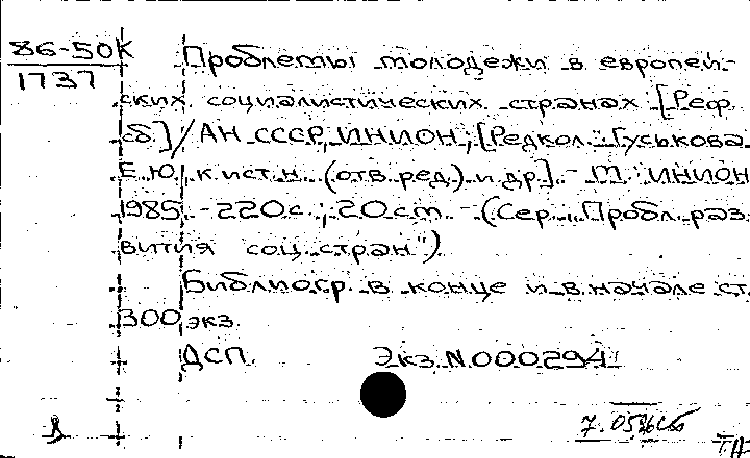 86-50К
1737
Проблемы молодежи в европей-
ских социалистических странах [Реф.
сб.]/АН СССР, ИНИОН; [Редкол.: Гуськова
Е.Ю., к.ист.н. (отв.ред.) и др.]. - М.: ИНИОН
1985. - 220с.; 20см. - (Сер. "Пробл. раз
вития соц.стран")
Библиогр. в конце и в начале ст.
300 экз.
ДСП. Экз.N.000294